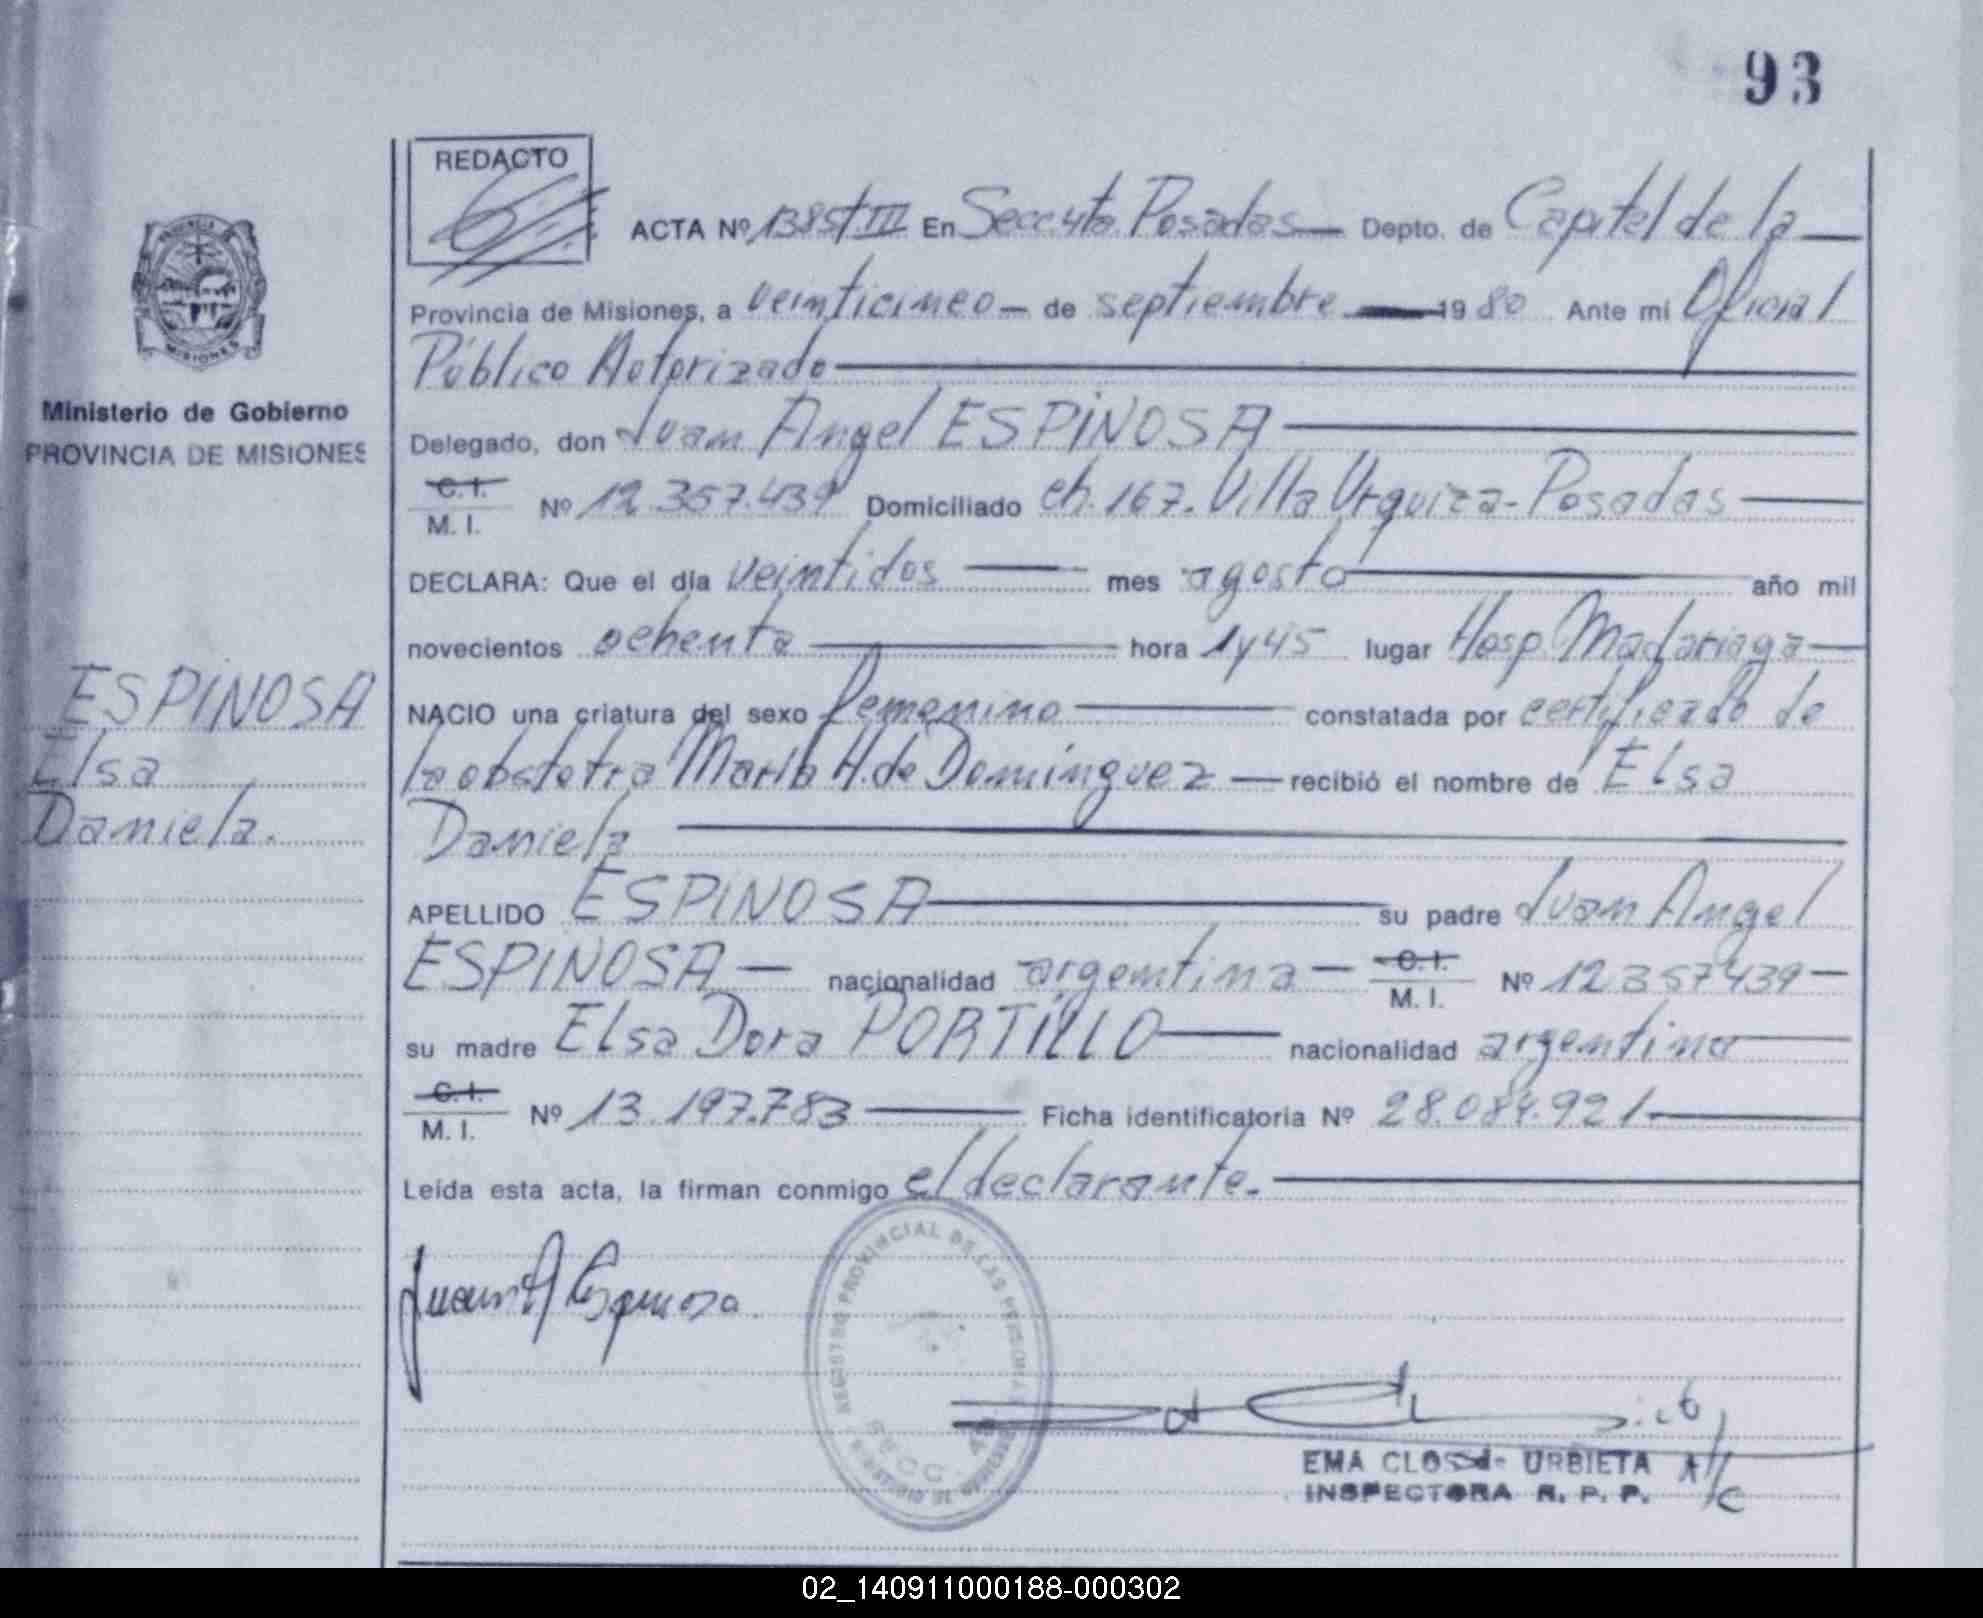 93
REDACTO
ACTA Nº 1385 T III En Secc. 4ta. Posadas Depto. de Capital de la
PROVINCIA DE
MISIONES
Provincia de Misiones, a veinticinco de septiembre 1980 Ante mi Oficial
Público Autorizado
Ministerio de Gobierno
PROVINCIA DE MISIONES
Delegado, don Juan Angel ESPINOSA
C. I.
M. I. Nº 12.357.439 Domiciliado ch. 167. Villa Urquiza - Posadas
DECLARA: Que el día veintidos mes agosto año mil
novecientos ochenta hora 1y45 lugar Hosp. Madariaga
ESPINOSA
Elsa
Daniela.
NACIO una criatura del sexo femenino constatada por certificado de
la obstetra María H. de Domínguez recibió el nombre de Elsa
Daniela
APELLIDO ESPINOSA su padre Juan Angel
ESPINOSA nacionalidad argentina C. I. M. I. Nº 12357439
su madre Elsa Dora PORTILLO nacionalidad argentina
C. I.
M. I. Nº 13.197.783 Ficha identificatoria Nº 28.084.921
Leída esta acta, la firman conmigo el declarante.
Juan A Espinosa
REGISTRO PROVINCIAL DE LAS PERSONAS
SECC. 4ª
EMA CLOSS de URBIETA
INSPECTORA R. P. P.
A/C
02_140911000188-000302